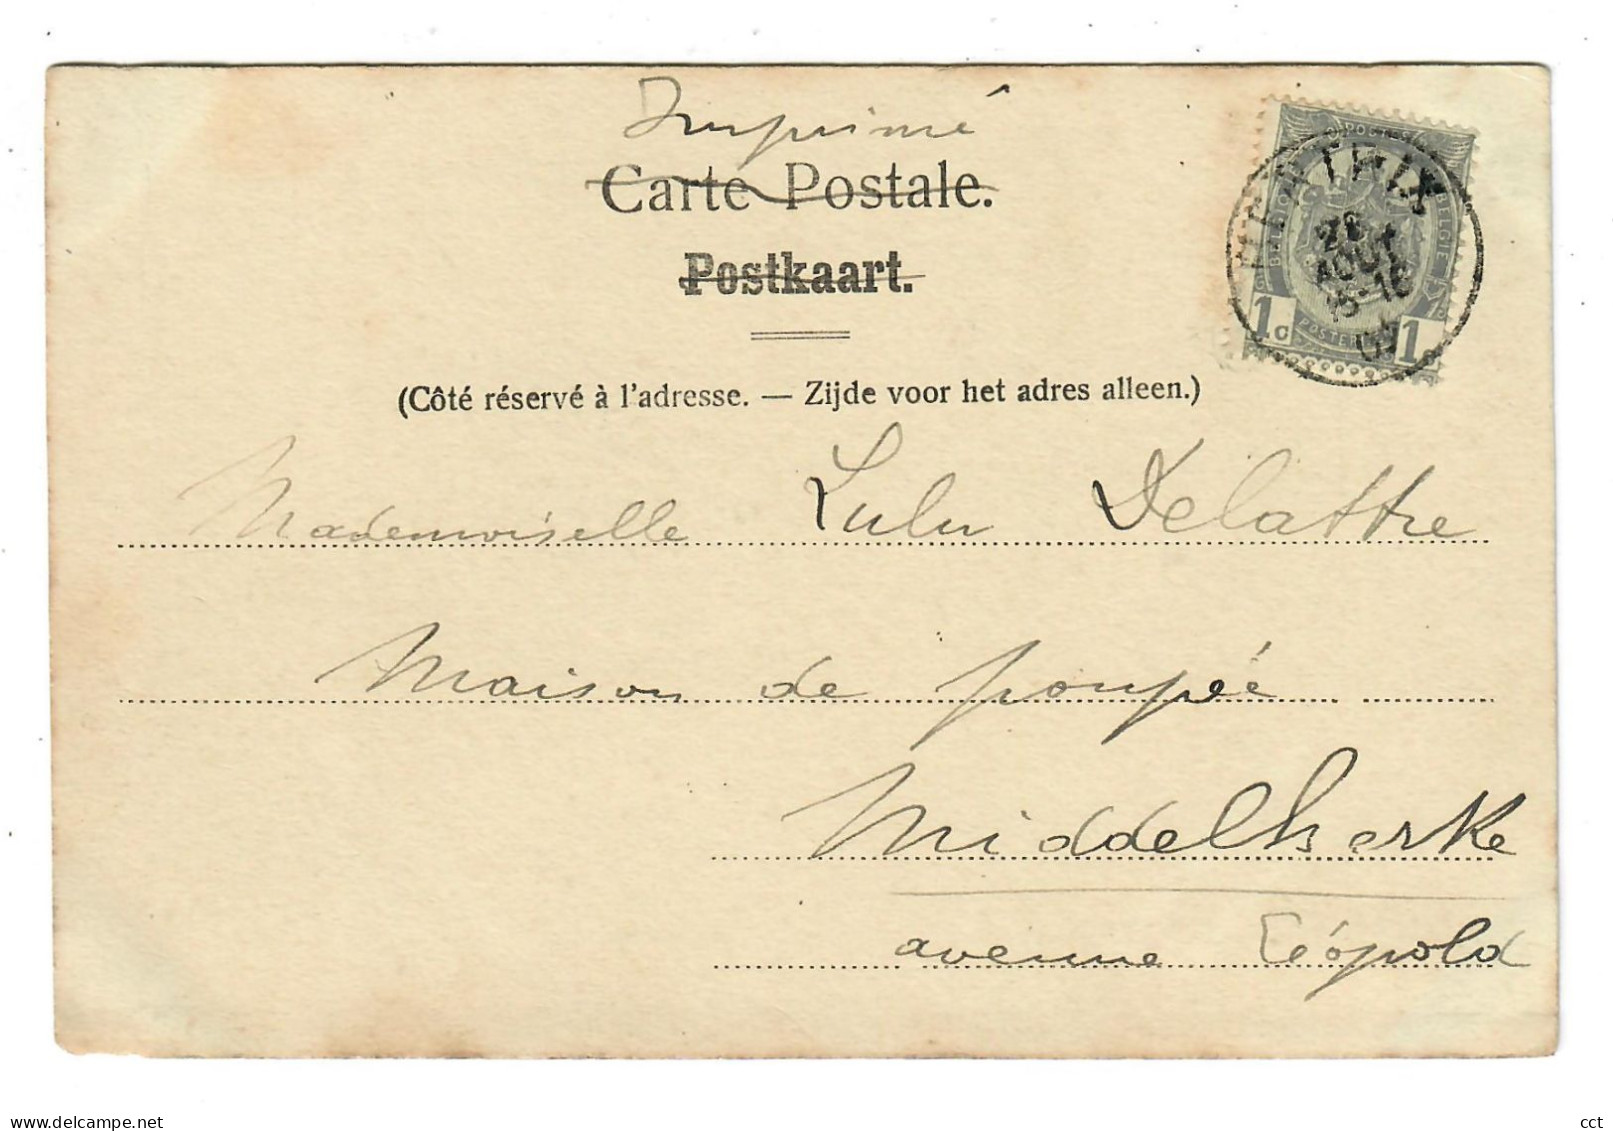 Imprimé
Carte Postale.
Postkaart.
(Côté réservé à l'adresse. — Zijde voor het adres alleen.)
POSTES
BELGIQUE
BELGIE
1c
1c
AOUT
Mademoiselle Lulu Delattre
Maison de poupée
Middelkerke
avenue Léopold
delcampe.net
cct